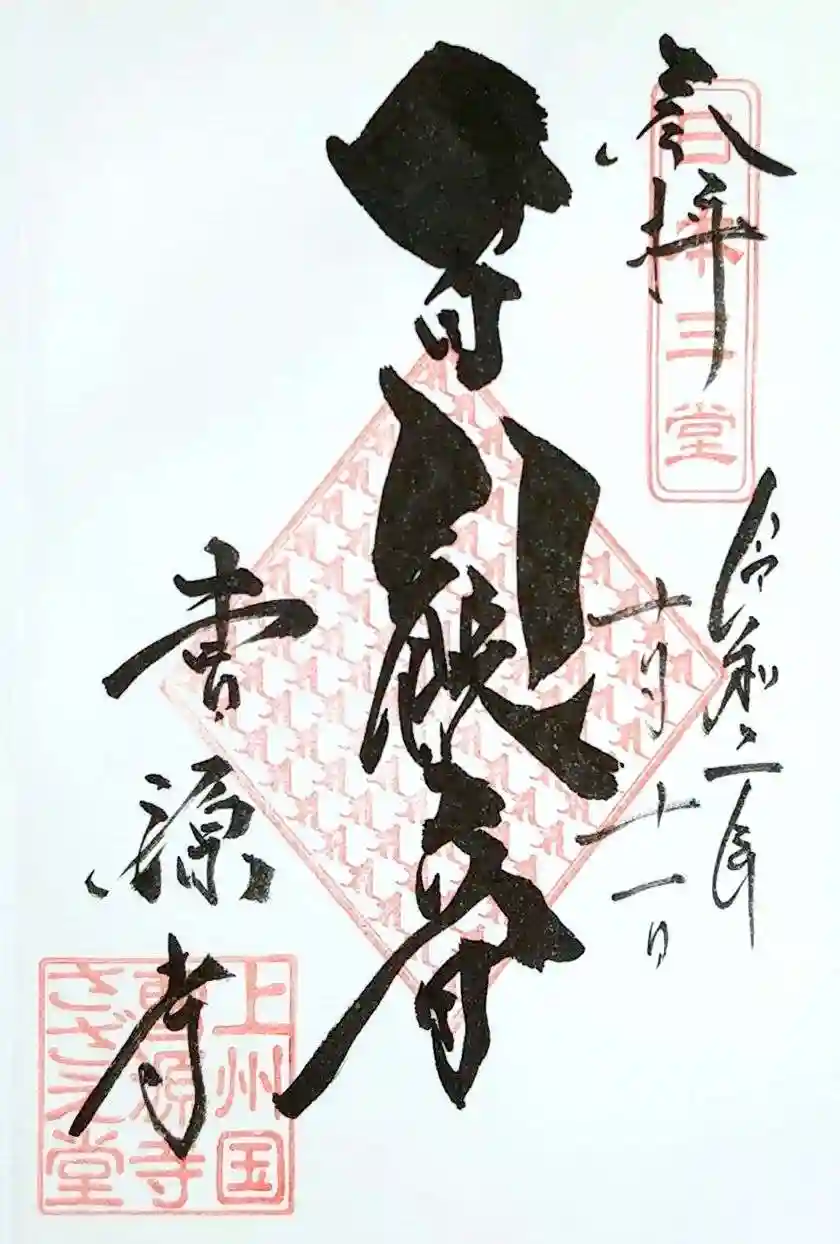 参拝
日本三堂
令和二年
十月十一日
観音
曹源寺
上州国
曹源寺
さざえ堂